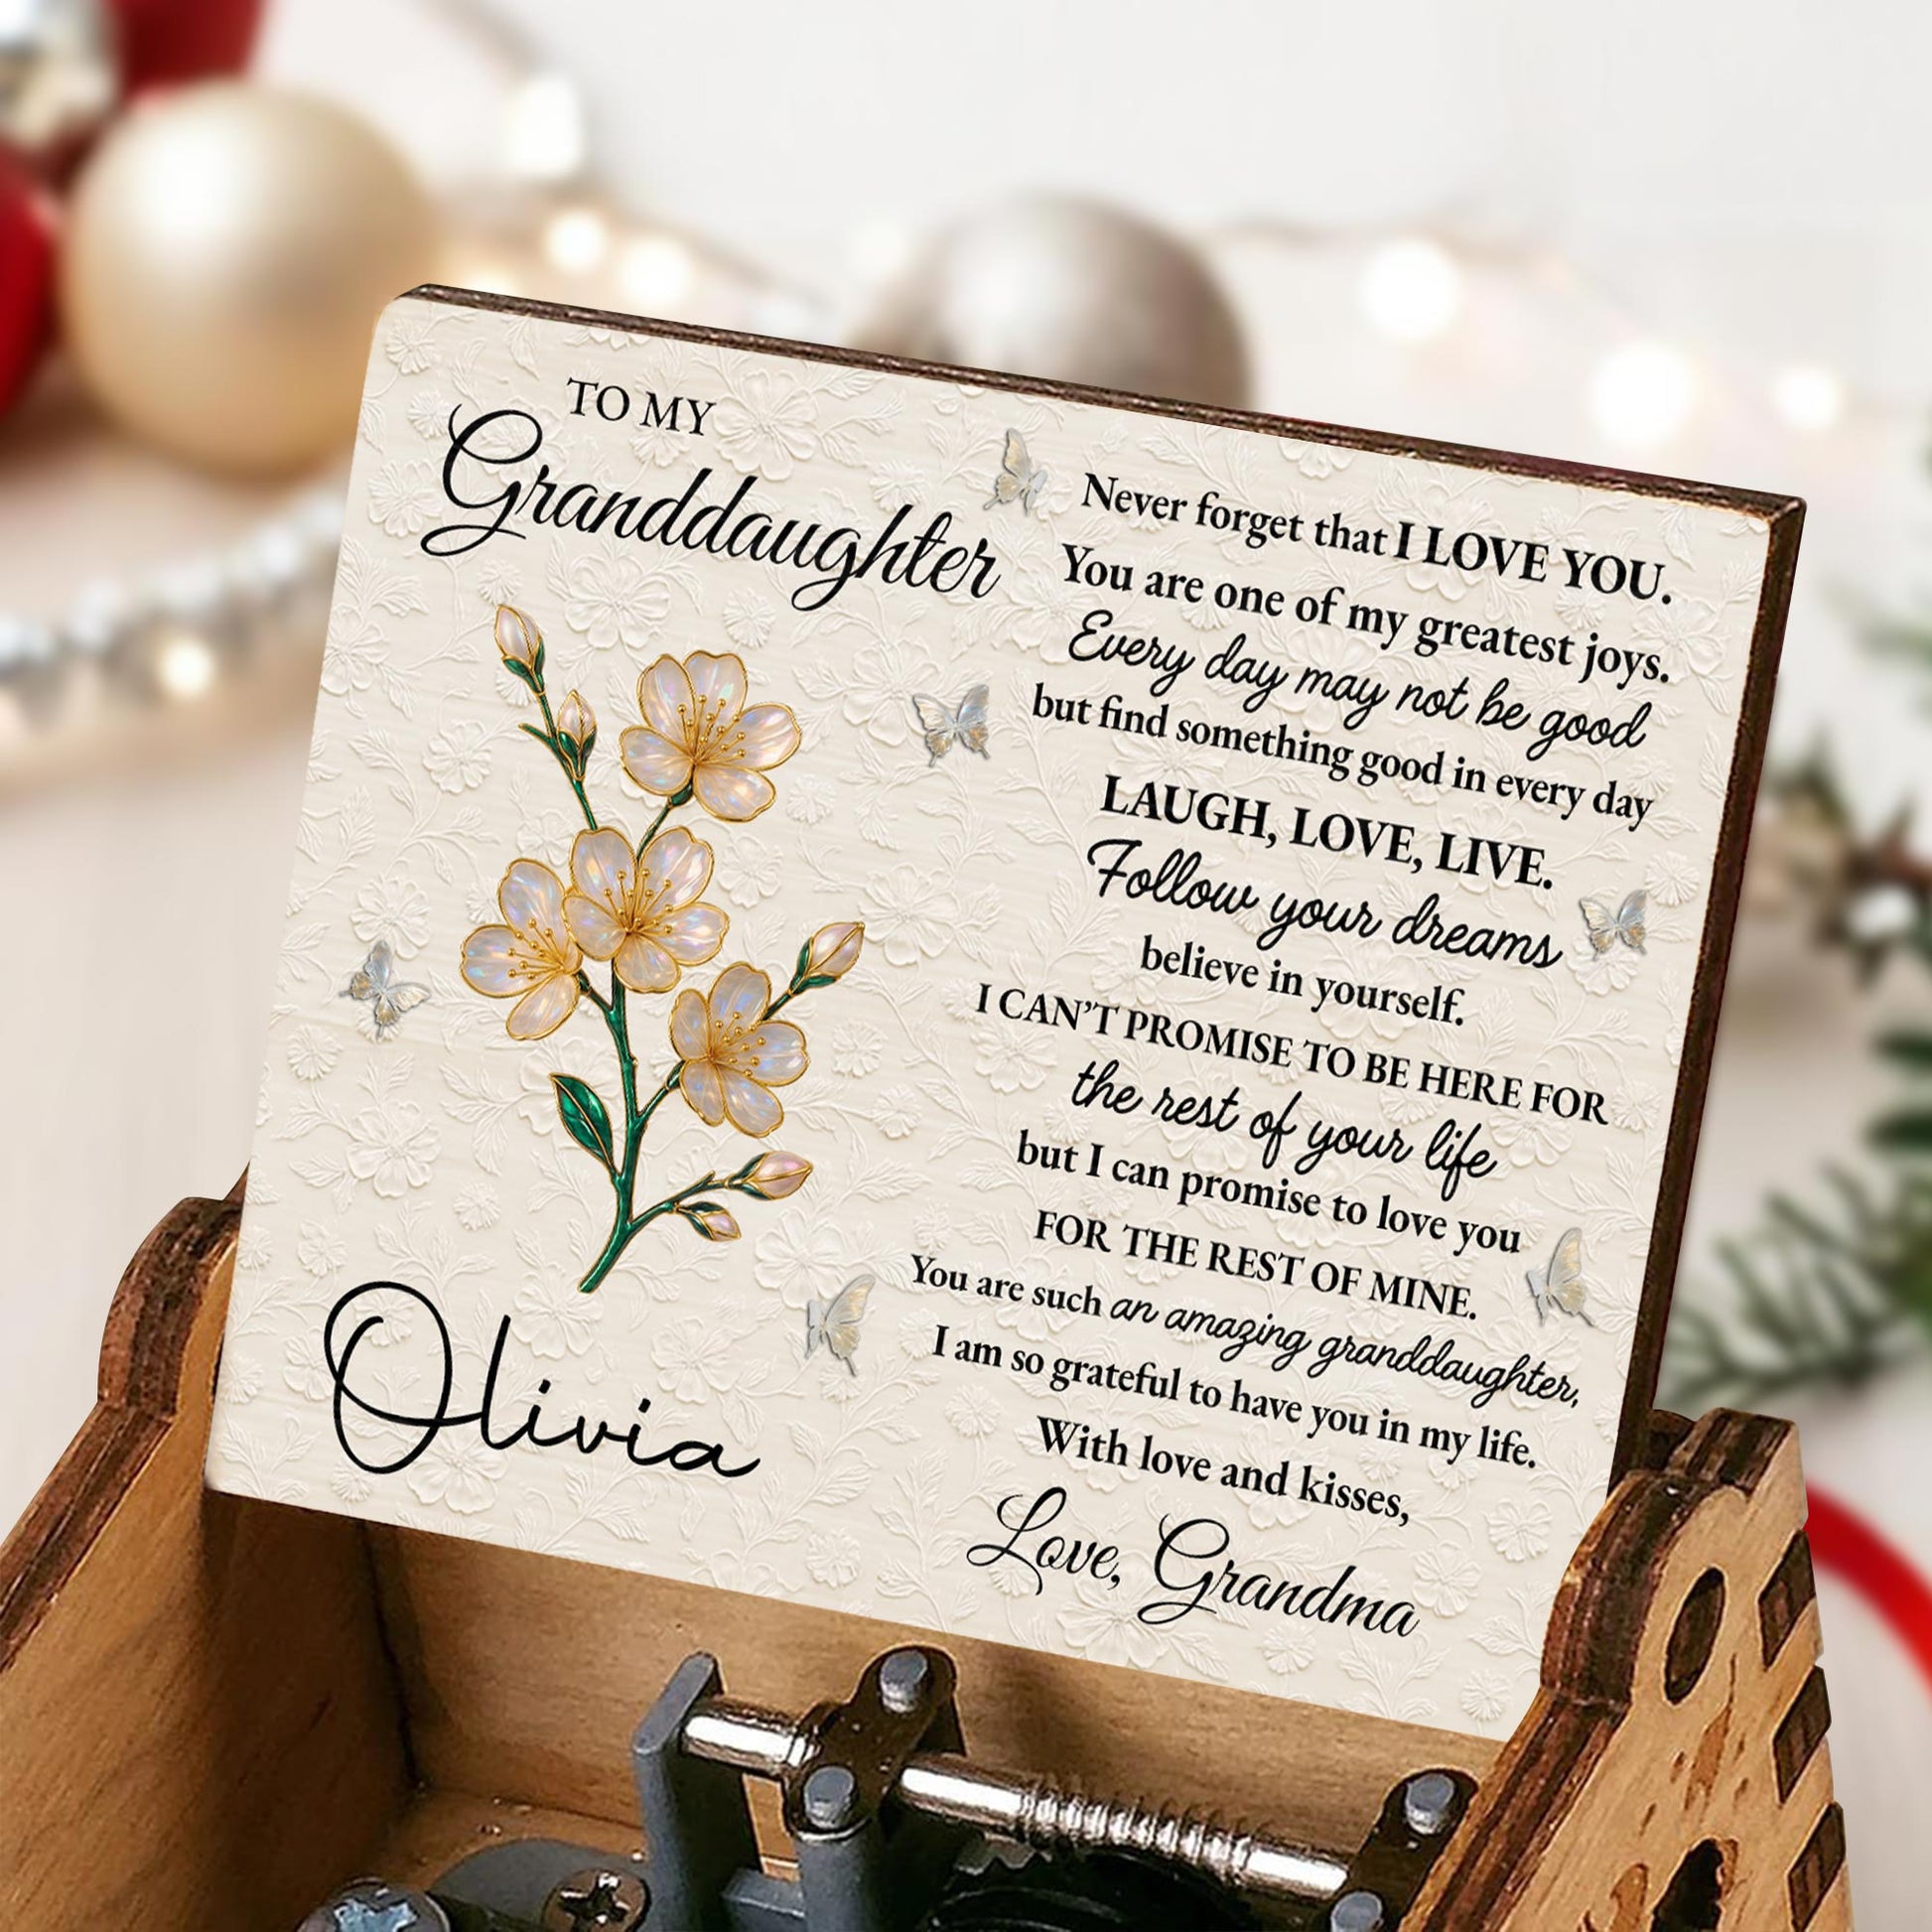 TO MY
Granddaughter
Olivia
Never forget that I LOVE YOU.
You are one of my greatest joys.
Every day may not be good
but find something good in every day
LAUGH, LOVE, LIVE.
Follow your dreams
believe in yourself.
I CAN'T PROMISE TO BE HERE FOR
the rest of your life
but I can promise to love you
FOR THE REST OF MINE.
You are such an amazing granddaughter,
I am so grateful to have you in my life.
With love and kisses,
Love, Grandma